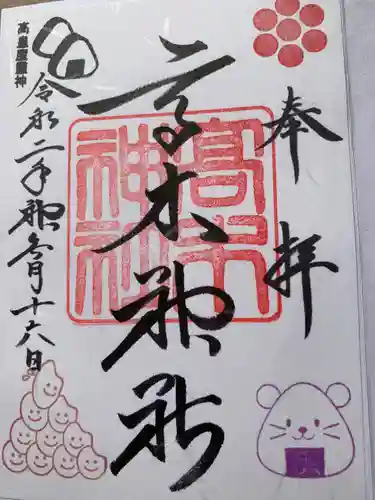 奉拝
高木神社
高木
神社
令和二年神無月十六日
高皇産靈神